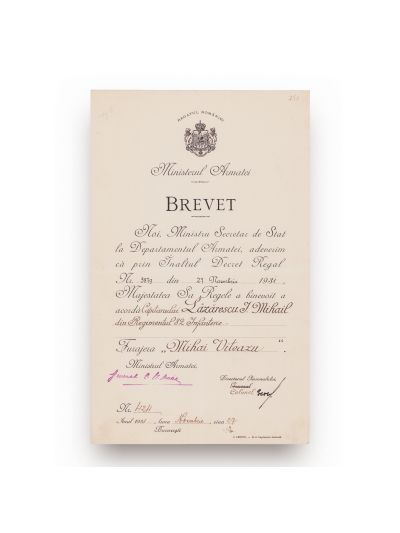 REGATUL ROMÂNIEI
Ministerul Armatei
BREVET
Noi, Ministru Secretar de Stat
la Departamentul Armatei, adeverim
că prin Înaltul Decret Regal
Nr. din 27 Noembrie 1931
Majestatea Sa Regele a binevoit a
acorda Capitanului Lăzărescu I. Mihail
din Regimentul 82 Infanterie
Furajera „Mihai Viteazu“.
Ministrul Armatei,
General
Directorul Personalului,
Colonel
Nr. 424
Anul 1931, luna Noembrie, ziua 27
Bucureşti